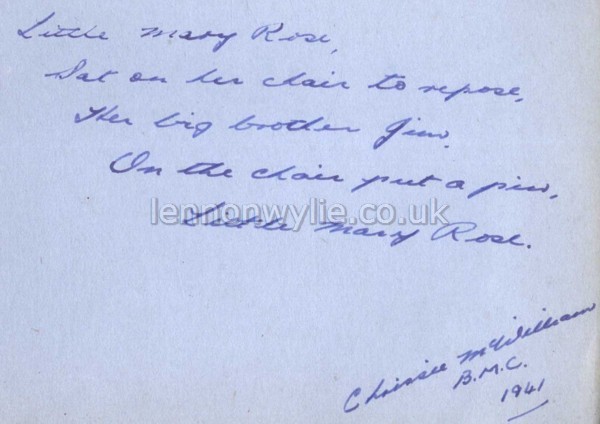 Little Mary Rose,
Sat on her chair to repose,
Her big brother Jim,
On the chair put a pin,
Little Mary Rose.
lennonwylie.co.uk
Chrissie McWilliam
B.M.C.
1941